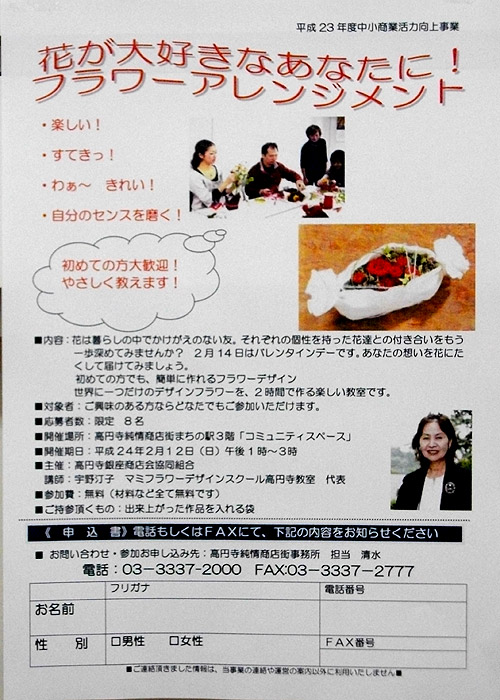 平成23年度中小商業活力向上事業
花が大好きなあなたに！
フラワーアレンジメント
・楽しい！
・すてきっ！
・わぁ～　きれい！
・自分のセンスを磨く！
初めての方大歓迎！
やさしく教えます！
■内容：花は暮らしの中でかけがえのない友。それぞれの個性を持った花達との付き合いをもう
一歩深めてみませんか？　2月14日はバレンタインデーです。あなたの想いを花にた
くして届けてみましょう。
初めての方でも、簡単に作れるフラワーデザイン
世界に一つだけのデザインフラワーを、2時間で作る楽しい教室です。
■対象者：ご興味のある方ならどなたでもご参加いただけます。
■応募者数：限定　8名
■開催場所：高円寺純情商店街まちの駅3階「コミュニティスペース」
■開催期日：平成24年2月12日（日）午後1時～3時
■主催：高円寺銀座商店会協同組合
講師：宇野灯子　マミフラワーデザインスクール高円寺教室　代表
■参加費：無料（材料など全て無料です）
■ご持参頂くもの：出来上がった作品を入れる袋
《　申　込　書》電話もしくはFAXにて、下記の内容をお知らせください
■　お問い合わせ・参加お申し込み先：高円寺純情商店街事務所　担当　清水
電話：03-3337-2000　FAX:03-3337-2777
フリガナ　電話番号
お名前
性　別　□男性　□女性　FAX番号
■ご連絡頂きました情報は、当事業の連絡や運営の案内以外に利用いたしません■